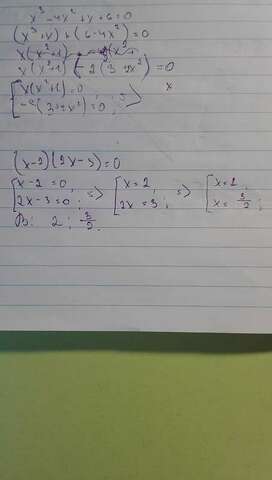 x³ - 4x² + x + 6 = 0
(x³ + x) + (6 - 4x²) = 0
x(x² + 1)
x(x² + 1) (-2(3 + 2x²) = 0
[x(x² + 1) = 0 ; x
(3 + 2x²) = 0 ;
(x - 2)(2x - 3) = 0
[x - 2 = 0, => [x = 2, => [x = 2,
2x - 3 = 0; 2x = 3; x = 3/2;
В: 2; 3/2.